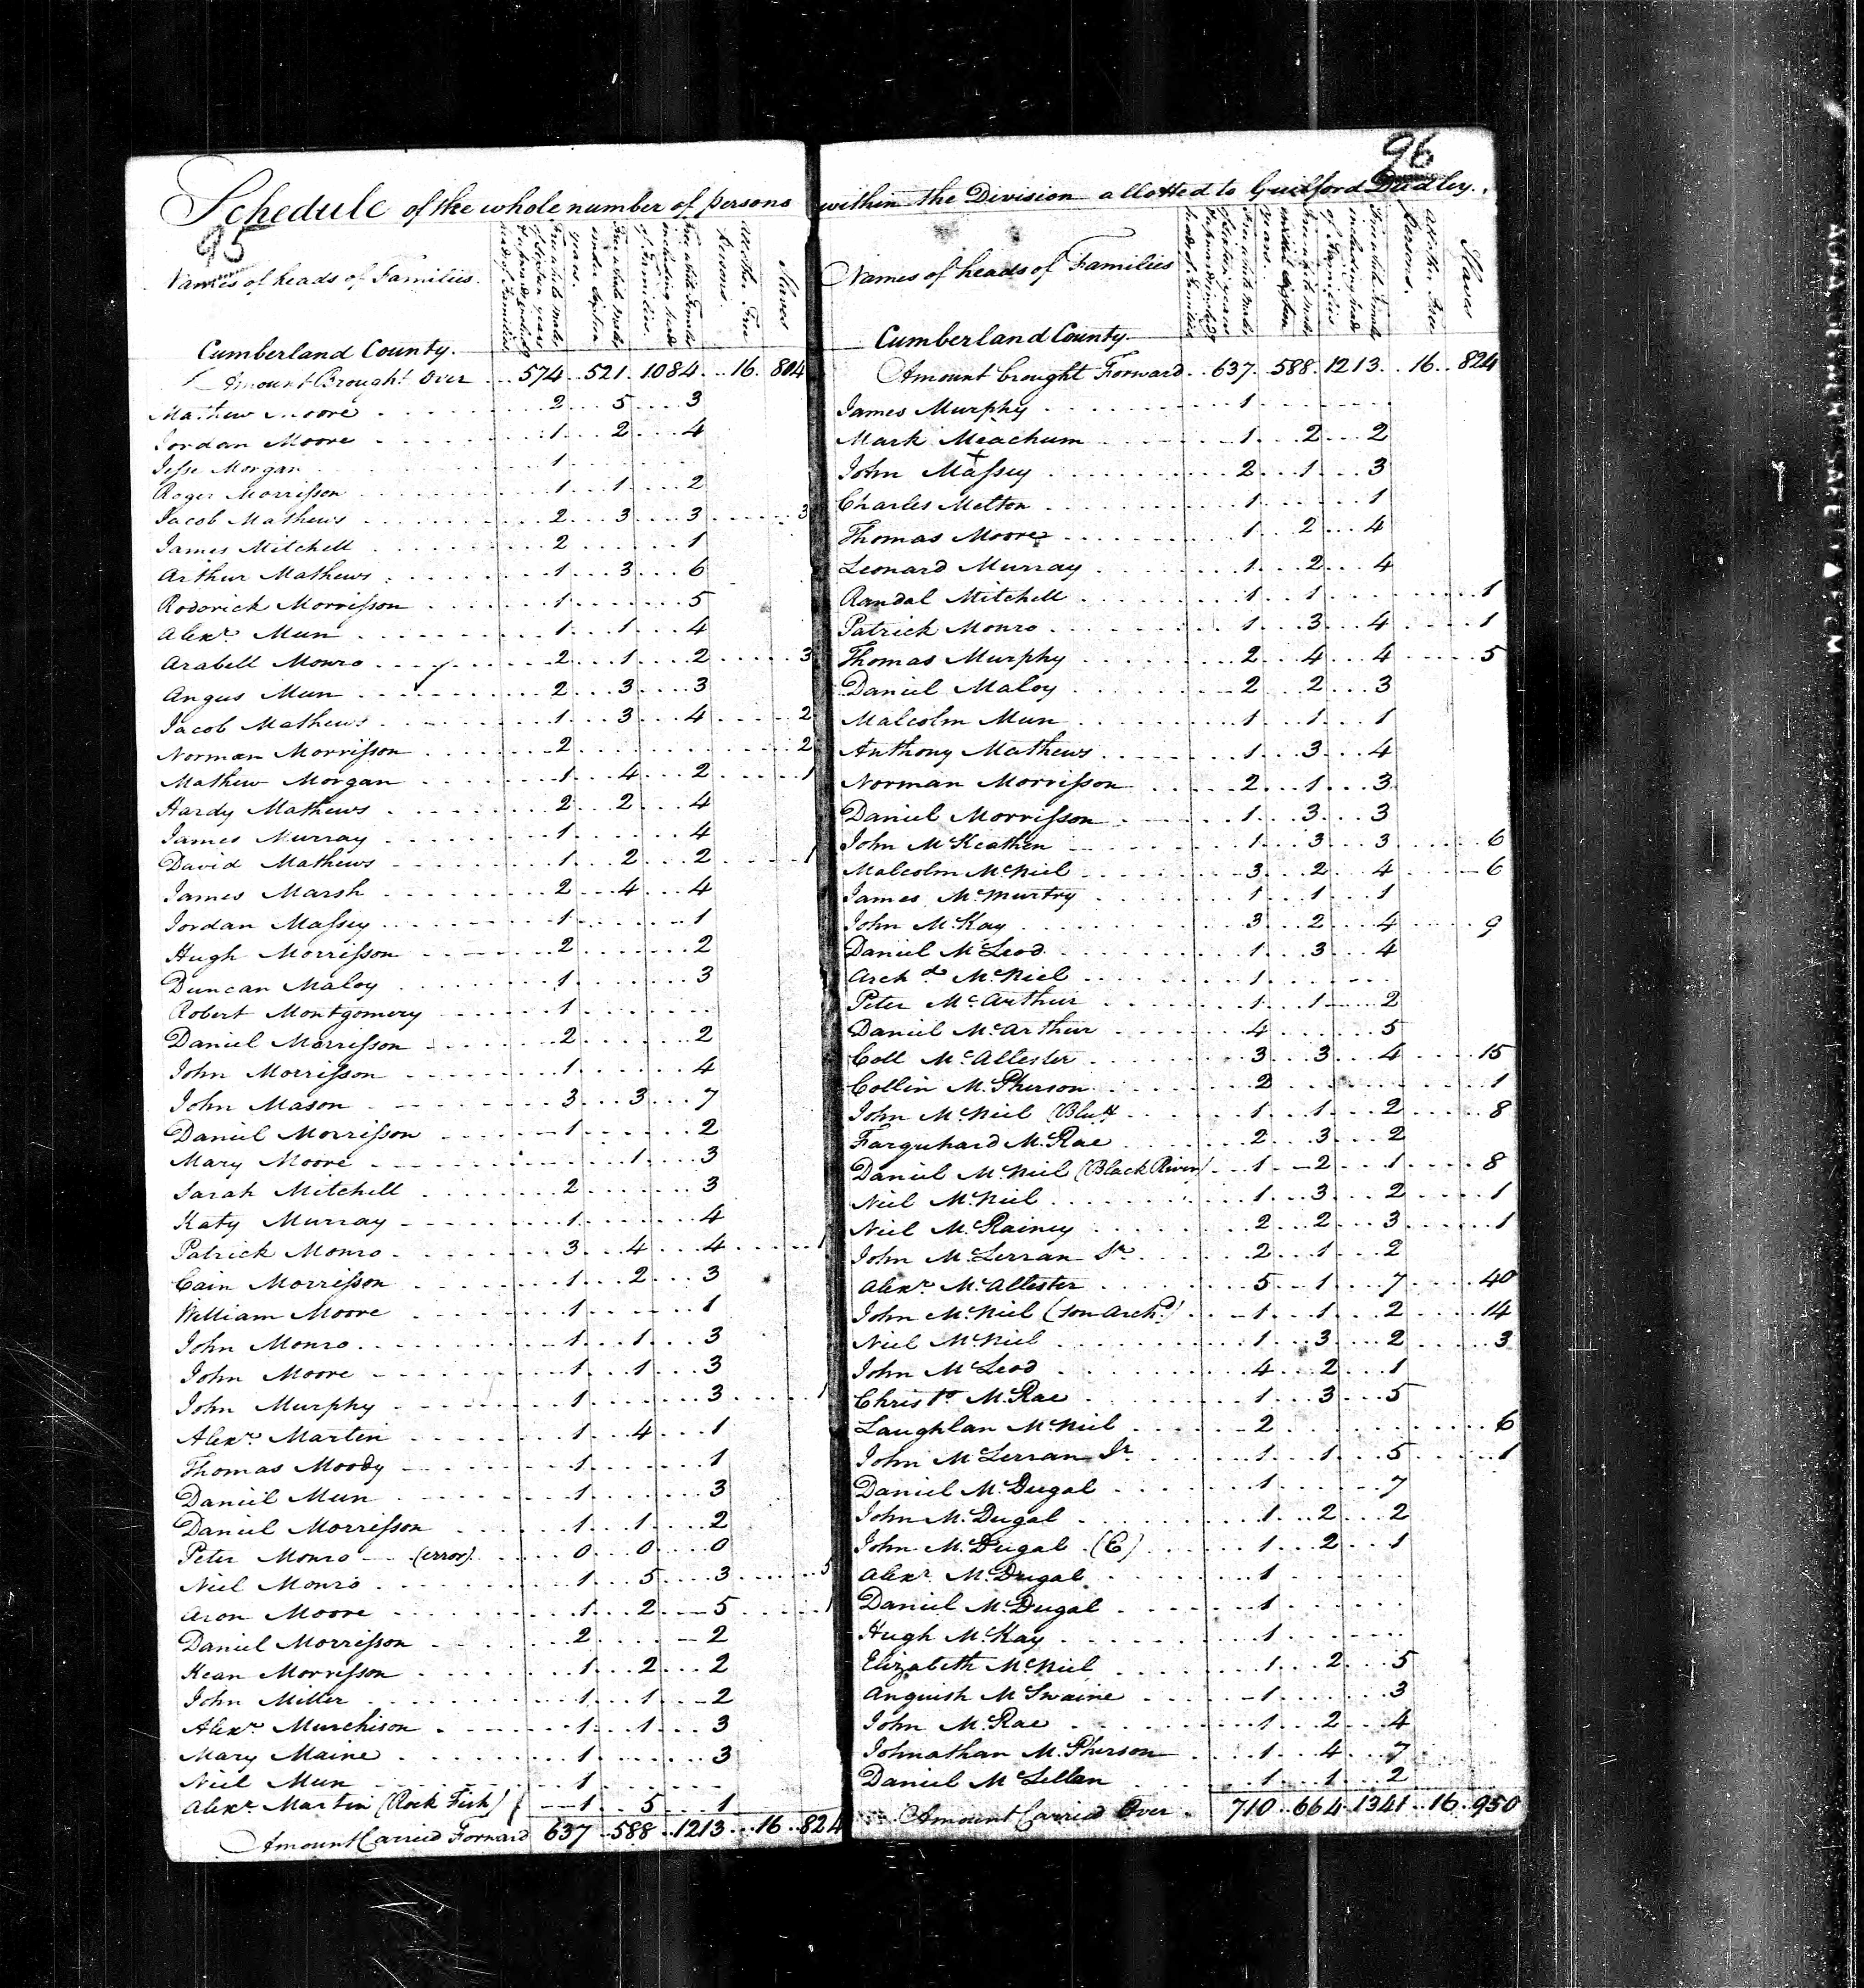 96
Schedule of the whole number of persons within the Division allotted to Guilford Dudley.
95
Names of heads of Families.
Free white males of sixteen years & upwards including heads of Families
Free white males under sixteen years.
Free white Females including heads of Families.
all other Free Persons.
Slaves
Cumberland County.
Amount Brought Over 574 521 1084 16 804
Mathew Moore 2 5 3
Jordan Moore 1 2 4
Jesse Morgan 1
Roger Morrisson 1 1 2
Jacob Mathews 2 3 3 3
James Mitchell 2 1
Arthur Mathews 1 3 6
Roderick Morrisson 1 5
Alexr. Mun 1 1 4
Arabell Monro 2 1 2 3
Angus Mun 2 3 3
Jacob Mathews 1 3 4 2
Norman Morrisson 2 2
Mathew Morgan 1 4 2 1
Hardy Mathews 2 2 4
James Murray 1 4
David Mathews 1 2 2 1
James Marsh 2 4 4
Jordan Massey 1 1
Hugh Morrisson 2 2
Duncan Maloy 1 3
Robert Montgomery 1
Daniel Morrisson 2 2
John Morrisson 1 4
John Mason 3 3 7
Daniel Morrisson 1 2
Mary Moore 1 3
Sarah Mitchell 2 3
Katy Murray 1 4
Patrick Monro 3 4 4 1
Cain Morrisson 1 2 3
William Moore 1 1
John Monro 1 1 3
John Moore 1 1 3
John Murphy 1 3 1
Alexr. Martin 1 4 1
Thomas Moody 1 1
Daniel Mun 1 3
Daniel Morrisson 1 1 2
Peter Monro (error) 0 0 0
Niel Monro 1 5 3 5
Aron Moore 1 2 5 1
Daniel Morrisson 2 2
Kean Morrisson 1 2 2
John Miller 1 1 2
Alexr. Murchison 1 1 3
Mary Maine 1 3
Niel Mun 1
Alexr. Martin (Rock Fish) 1 5 1
Amount Carried Forward 637 588 1213 16 824
Names of heads of Families
Free white males of sixteen years & upwards including heads of Families
Free white males under sixteen years.
Free white Females including heads of Families
all other Free Persons.
Slaves
Cumberland County
Amount brought Forward 637 588 1213 16 824
James Murphy 1
Mark Meachum 1 2 2
John Massey 2 1 3
Charles Melton 1 1
Thomas Moore 1 2 4
Leonard Murray 1 2 4
Randal Mitchell 1 1 1
Patrick Monro 1 3 4 1
Thomas Murphy 2 4 4 5
Daniel Maloy 2 2 3
Malcolm Mun 1 1 1
Anthony Mathews 1 3 4
Norman Morrisson 2 1 3
Daniel Morrisson 1 3 3
John McKeathen 1 3 3 6
Malcolm McNiel 3 2 4 6
James McMurtry 1 1 1
John McKay 3 2 4 9
Daniel McLeod 1 3 4
Archd. McNiel 1
Peter McArthur 1 1 2
Daniel McArthur 4 5
Coll McAllester 3 3 4 15
Collin McPherson 2 1
John McNiel (Bluff 1 1 2 8
Farquhard McRae 2 3 2
Daniel McNiel (Black River) 1 2 1 8
Niel McNiel 1 3 2 1
Niel McRainey 2 2 3 1
John McLerran Sr. 2 1 2
Alexr. McAllester 5 1 7 40
John McNiel (son Archd.) 1 1 2 14
Niel McNiel 1 3 2 3
John McLeod 4 2 1
Christo. McRae 1 3 5
Laughlan McNiel 2 6
John McLerran Jr. 1 1 5 1
Daniel McDugal 1 7
John McDugal 1 2 2
John McDugal (C) 1 2 1
Alexr. McDugal 1
Daniel McDugal 1
Hugh McKay 1
Elizabeth McNiel 1 2 5
Anguish McSwaine 1 3
John McRae 1 2 4
Johnathan McPherson 1 4 7
Daniel McLellan 1 1 2
Amount Carried Over 710 664 1341 16 950